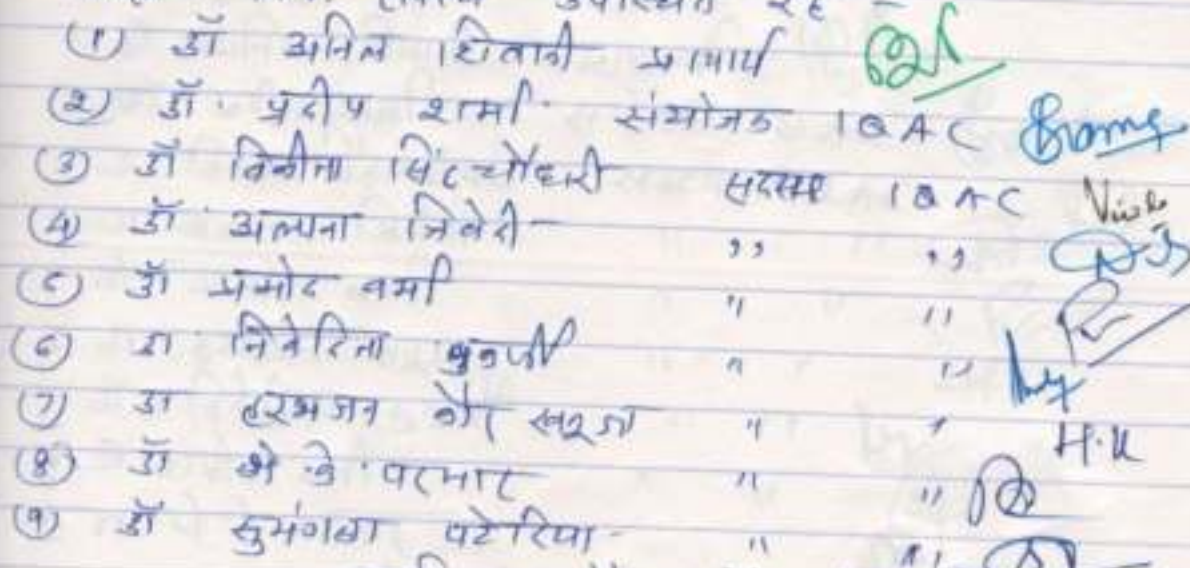 उपस्थित रहे -
(1) डॉ अनिल शिवानी प्राचार्य
(2) डॉ. प्रदीप शर्मा संयोजक IQAC
(3) डॉ विनीता सिंह चौधरी सदस्य IQAC
(4) डॉ अल्पना त्रिवेदी - ,, ,,
(5) डॉ प्रमोद वर्मा " "
(6) डा निवेदिता मुकर्जी " "
(7) डा हरभजन कौर " "
(8) डॉ के परमार " "
(9) डॉ सुमंगला पटेरिया - " "